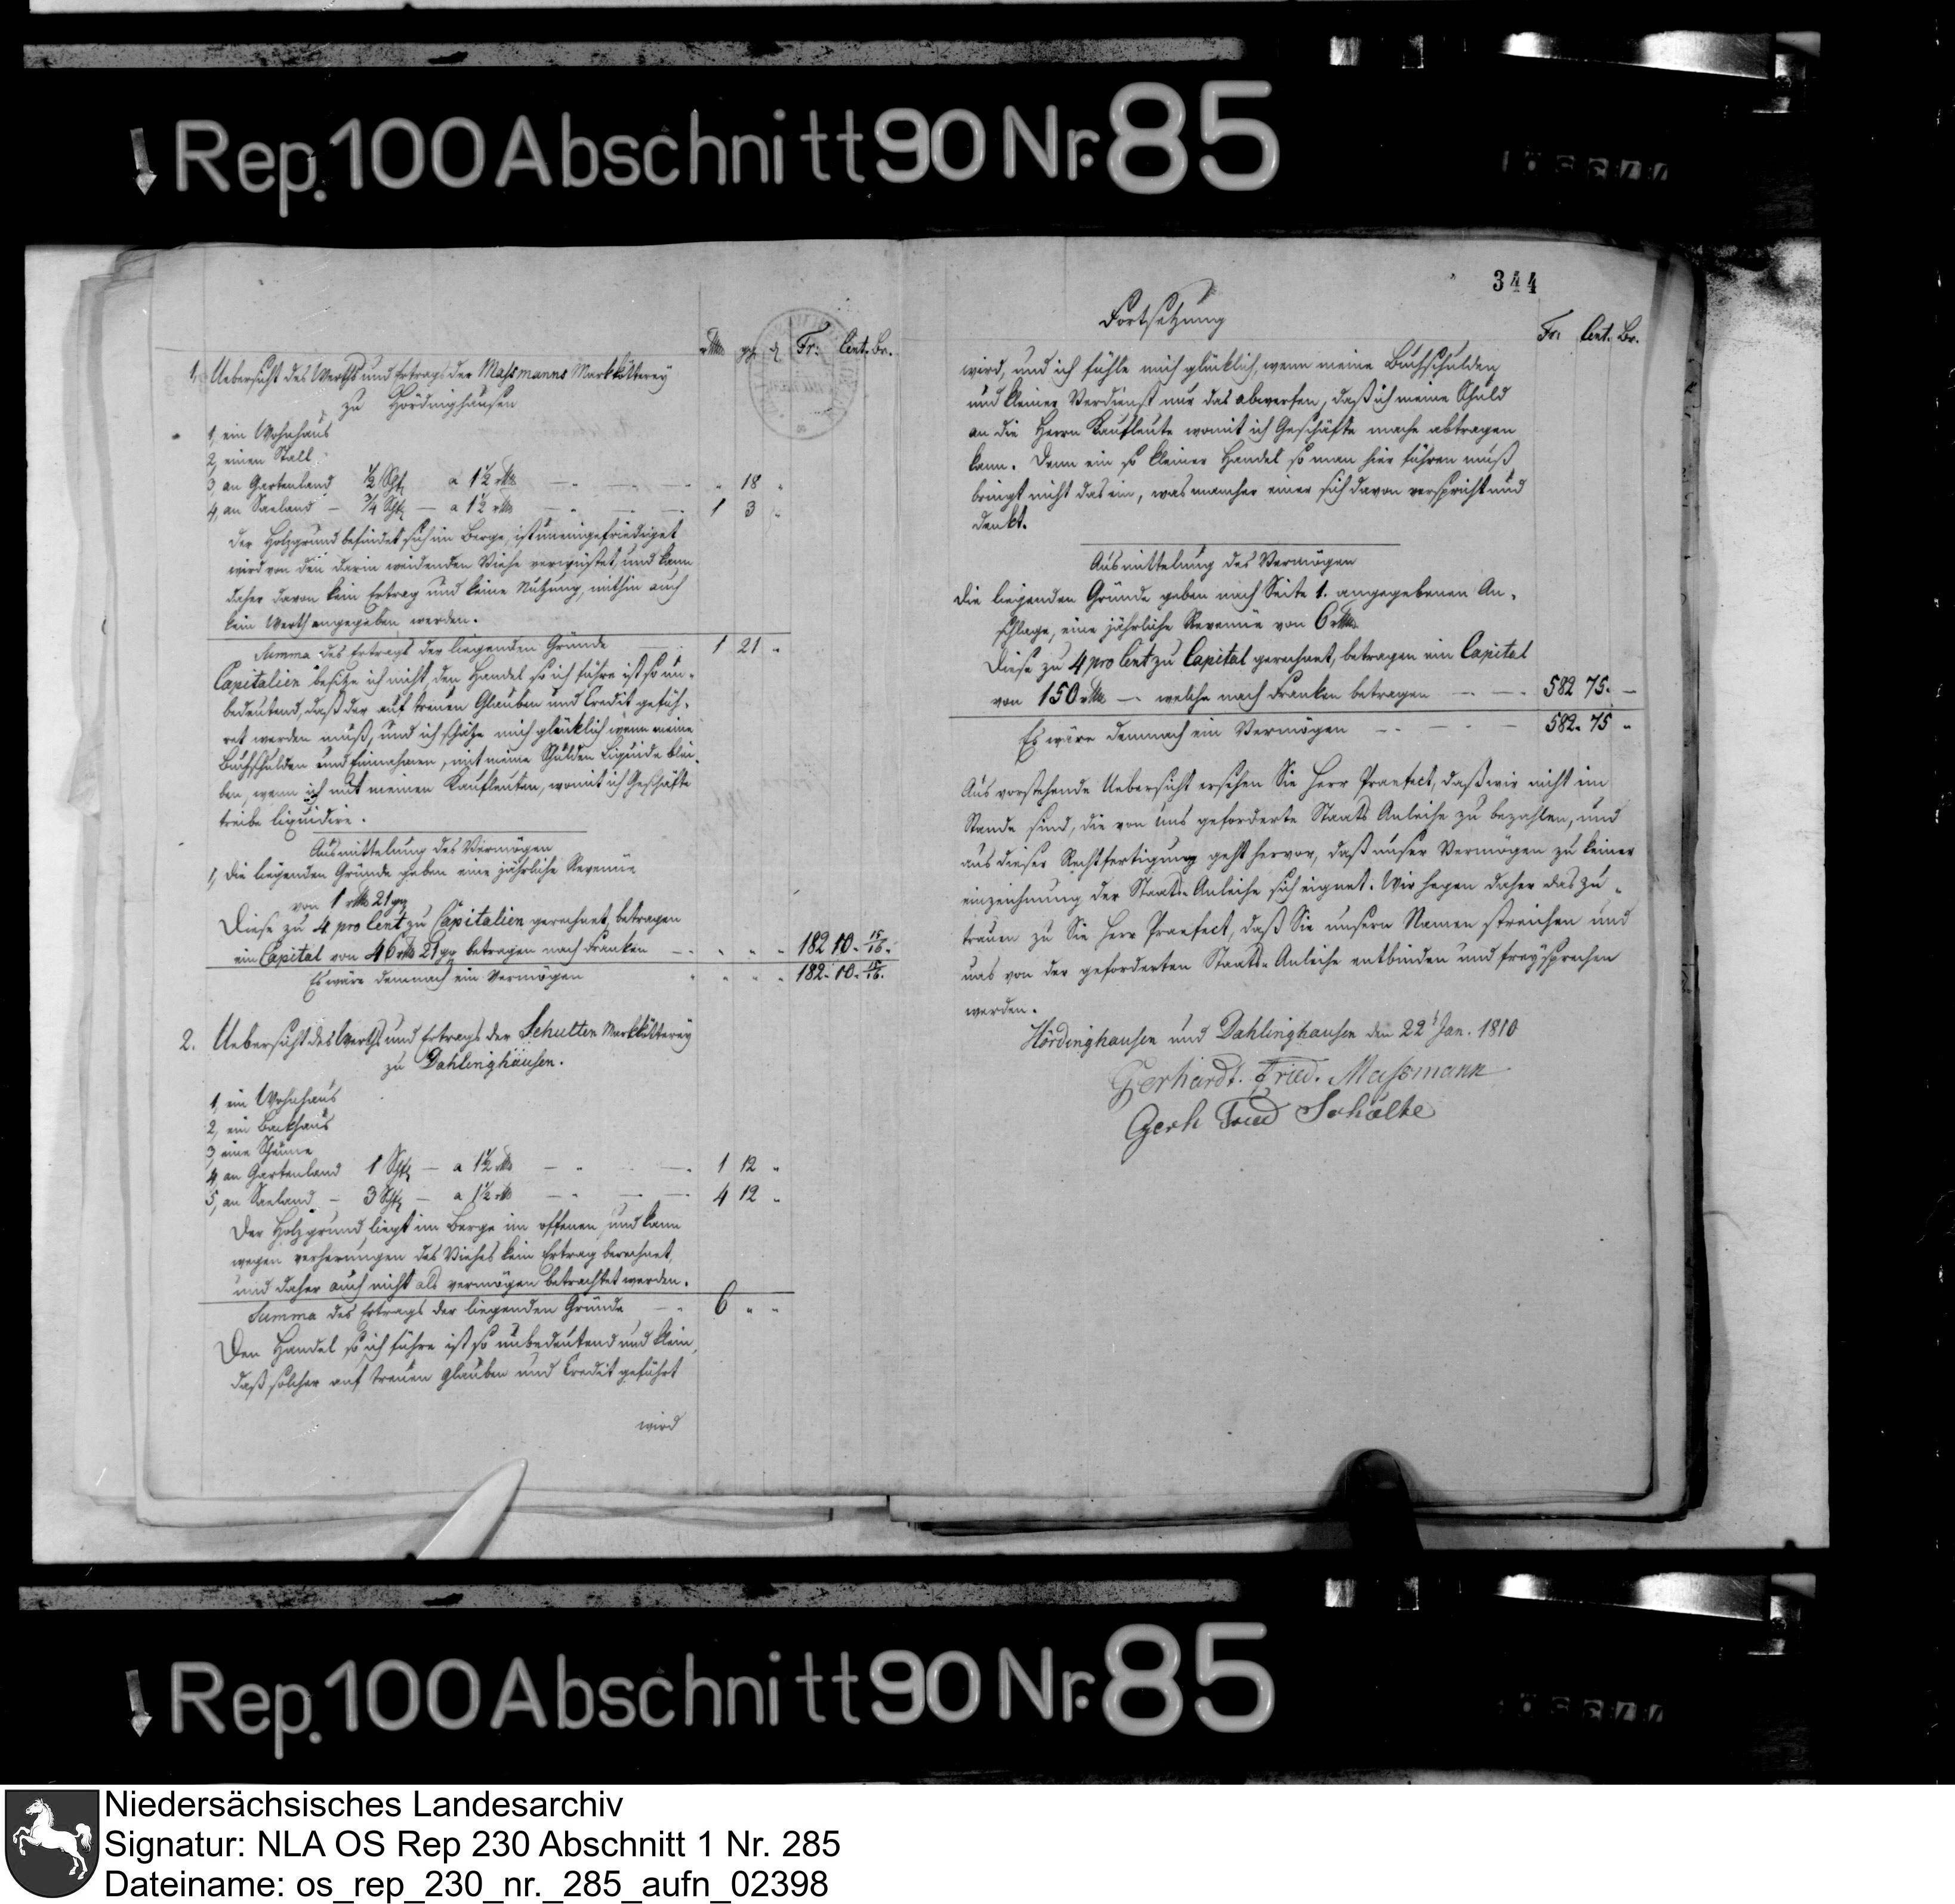 Rep. 100 Abschnitt 90 Nr. 85
344
Rthlr ggr ₰ Fr: Cent. Br.
1, Uebersicht des Werths und Ertrags der Massmanns Markkötterey
zu Hördinghausen
1, ein Wohnhaus
2, einen Stall
3, an Gartenland ½ Schfl a 1½ rthlr — — — " 18 "
4, an Saeland — ¾ Schfl — a 1½ rthlr — — — 1 3 "
der Holzgrund befindet sich im Berge, ist uneingefriediget
wird von den darin weidenden Viehe verwüstet, und kann
daher davon kein Ertrag und keine Nutzung, mithin auch
kein Werth angegeben werden.
Summa des Ertrags der liegenden Gründe 1 21 "
Capitalien besitze ich nicht, den Handel so ich führe ist so un-
bedeutend, daß der auf treuen Glauben und Credit gefüh-
ret werden muß, und ich schätze mich glücklich wenn meine
Buchschulden und Einnahmen, mit meine Schulden Liquide blei-
ben, wenn ich mit meinen Kaufleuten, womit ich Geschäfte
treibe liquidire.
Ausmittelung des Vermögen
1, die liegenden Gründe geben eine jährliche Revenüe
von 1 rthlr 21 ggr
Diese zu 4 pro Cent zu Capitalien gerechnet, betragen
ein Capital von 46 rthlr 21 ggr betragen nach Franken — " " " 182 10 - 15/16.
Es wäre demnach ein Vermögen " " " " 182. 10. 15/16.
2. Uebersicht des Werths und Ertrags der Schulten Markkötterey
zu Dahlinghausen.
1, ein Wohnhaus
2, ein Backhaus
3, eine Scheune
4, an Gartenland 1 Schfl — a 1½ rthlr — " — 1 12 "
5, an Saeland — 3 Schfl — a 1½ rthlr — " — — 4 12 "
Der Holzgrund liegt im Berge im offenen und kann
wegen verherungen des Viehes kein Ertrag berechnet,
und daher auch nicht als vermögen betrachtet werden.
Summa des Ertrags der liegenden Gründe — " 6 " "
Den Handel so ich führe ist so unbedeutend und klein,
daß solcher auf treuen Glauben und Credit geführt
wird
Fortsetzung
Fr: Cent. Br.
wird, und ich fühle mich glücklich, wenn meine Buchschulden
und kleiner Verdienst nur das abwerfen, daß ich meine Schuld
an die Herrn Kaufleute womit ich Geschäfte mache abtragen
kann. Denn ein so kleiner Handel so man hier führen muß
bringt nicht das ein, was mancher einer sich davon verspricht und
denkt.
Ausmittelung des Vermögen
Die liegenden Gründe geben nach Seite 1. angegebenen An-
schlage, eine jährliche Revenüe von 6 rthlr
Diese zu 4 pro Cent zu Capital gerechnet, betragen ein Capital
von 150 rthlr — welche nach Franken betragen — — 582 75. —
Es wäre demnach ein Vermögen — — — 582. 75 "
Aus vorstehende Uebersicht ersehen Sie Herr Praefect, daß wir nicht im
Stande sind, die von uns geforderte Staats Anleihe zu bezahlen, und
aus dieser Rechtfertigung geht hervor, daß unser Vermögen zu keiner
einzeichnung der Staats-Anleihe sich eignet. Wir hegen daher das Zu-
trauen zu Sie Herr Praefect, daß Sie unsern Namen streichen und
uns von der geforderten Staats-Anleihe entbinden und freysprechen
werden.
Hördinghausen und Dahlinghausen den 22t Jan. 1810
Gerhardt. Fried. Massmann
Gerh Fried Schulte
Rep. 100 Abschnitt 90 Nr. 85
Niedersächsisches Landesarchiv
Signatur: NLA OS Rep 230 Abschnitt 1 Nr. 285
Dateiname: os_rep_230_nr._285_aufn_02398